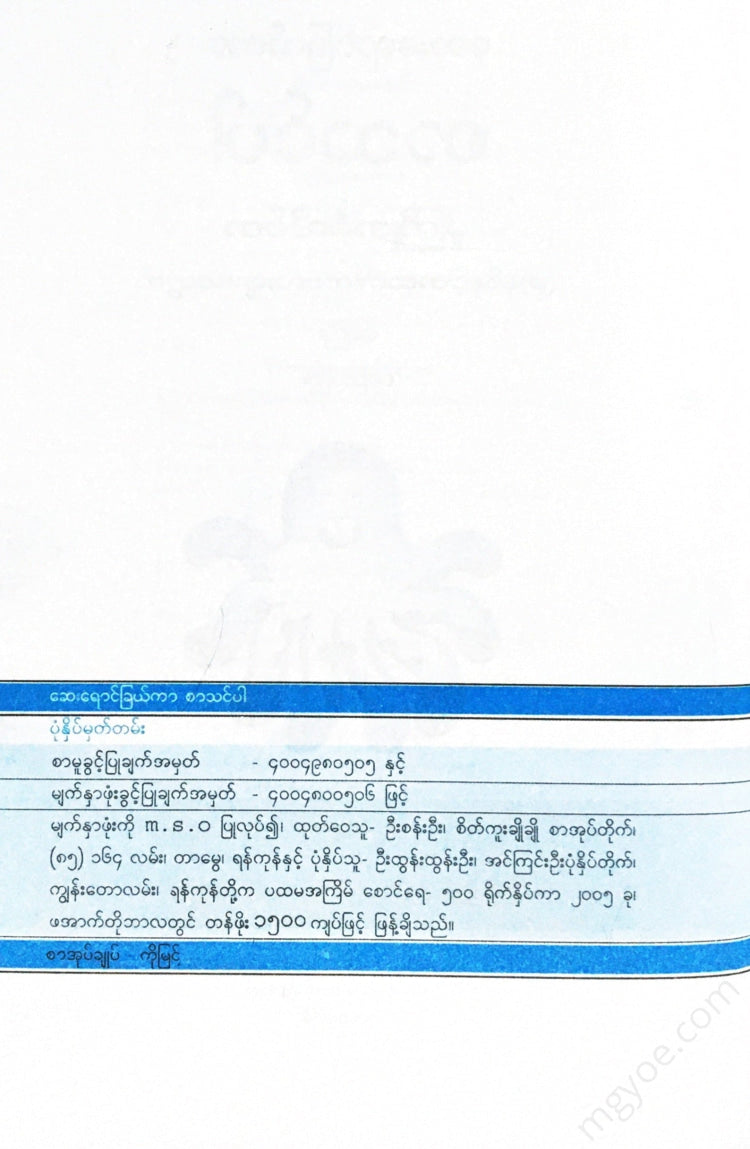 ဆေးရောင်ခြယ်ကာ စာသင်ပါ
ပုံနှိပ်မှတ်တမ်း
စာမူခွင့်ပြုချက်အမှတ် - ၄၀၀၄၉၈၀၅၀၅ နှင့်
မျက်နှာဖုံးခွင့်ပြုချက်အမှတ် - ၄၀၀၄၈၀၀၅၀၆ ဖြင့်
မျက်နှာဖုံးကို m.s.o ပြုလုပ်၍၊ ထုတ်ဝေသူ- ဦးစန်းဦး၊ စိတ်ကူးချိုချို စာအုပ်တိုက်၊
(၈၅) ၁၆၄ လမ်း၊ တာမွေ၊ ရန်ကုန်နှင့် ပုံနှိပ်သူ- ဦးထွန်းထွန်းဦး၊ အင်ကြင်းဦးပုံနှိပ်တိုက်၊
ကျွန်းတောလမ်း၊ ရန်ကုန်တို့က ပထမအကြိမ် စောင်ရေ- ၅၀၀ ရိုက်နှိပ်ကာ ၂၀၀၅ ခု၊
ဖအောက်တိုဘာလတွင် တန်ဖိုး ၁၅၀၀ ကျပ်ဖြင့် ဖြန့်ချိသည်။
စာအုပ်ချုပ် - ကိုမြင့်
mgyoe.com